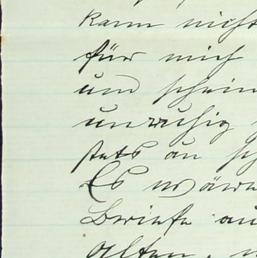 kann nicht
für mich
und schein
unruhig
stets an sch
Es wäre
Briefe au
alten,